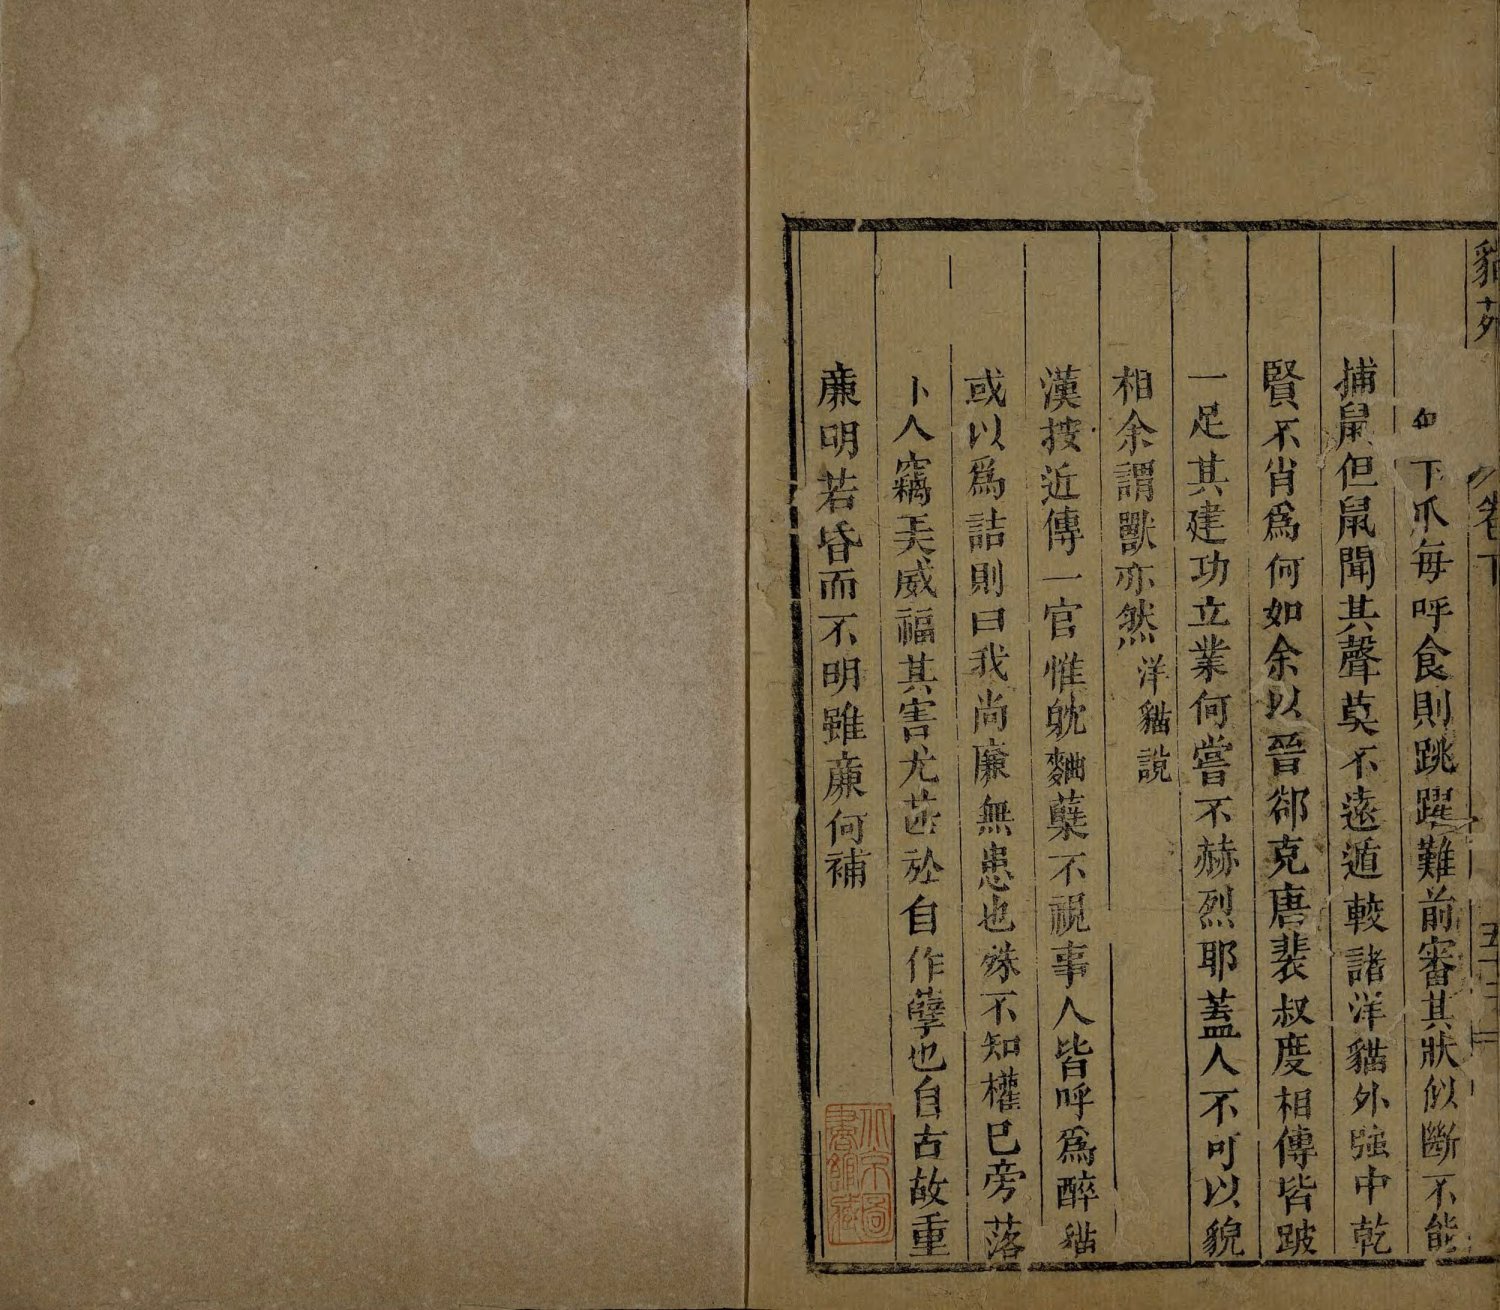 貓苑
卷下
下爪每呼食則跳躍難前審其狀似斷不能
捕鼠但鼠聞其聲莫不遠遁較諸洋貓外强中乾
賢不肖爲何如余以晉郤克唐裴叔度相傳皆跛
一足其建功立業何嘗不赫烈耶蓋人不可以貌
相余謂獸亦然洋貓說
漢按近傳一官惟躭麯蘖不視事人皆呼爲醉貓
或以爲詰則曰我尚廉無患也殊不知權已旁落
卜人竊其威福其害尤甚於自作孽也自古故重
亷明若昏而不明雖亷何補
北京圖
書館藏